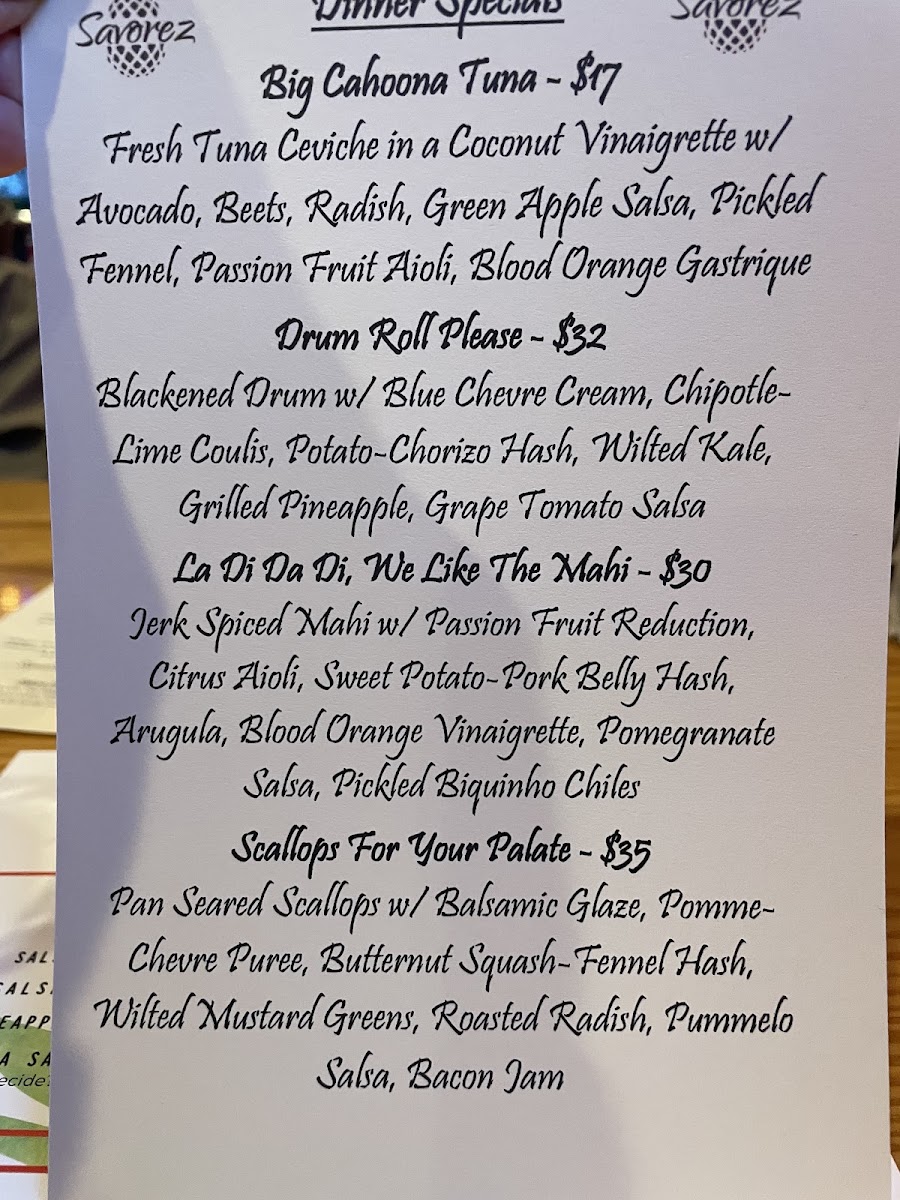 Dinner Specials
Savorez
Savorez
Big Cahoona Tuna - $17
Fresh Tuna Ceviche in a Coconut Vinaigrette w/
Avocado, Beets, Radish, Green Apple Salsa, Pickled
Fennel, Passion Fruit Aioli, Blood Orange Gastrique
Drum Roll Please - $32
Blackened Drum w/ Blue Chevre Cream, Chipotle-
Lime Coulis, Potato-Chorizo Hash, Wilted Kale,
Grilled Pineapple, Grape Tomato Salsa
La Di Da Di, We Like The Mahi - $30
Jerk Spiced Mahi w/ Passion Fruit Reduction,
Citrus Aioli, Sweet Potato-Pork Belly Hash,
Arugula, Blood Orange Vinaigrette, Pomegranate
Salsa, Pickled Biquinho Chiles
Scallops For Your Palate - $35
Pan Seared Scallops w/ Balsamic Glaze, Pomme-
Chevre Puree, Butternut Squash-Fennel Hash,
Wilted Mustard Greens, Roasted Radish, Pummelo
Salsa, Bacon Jam
SAL
ALS
EAPP
A SA
ecide?